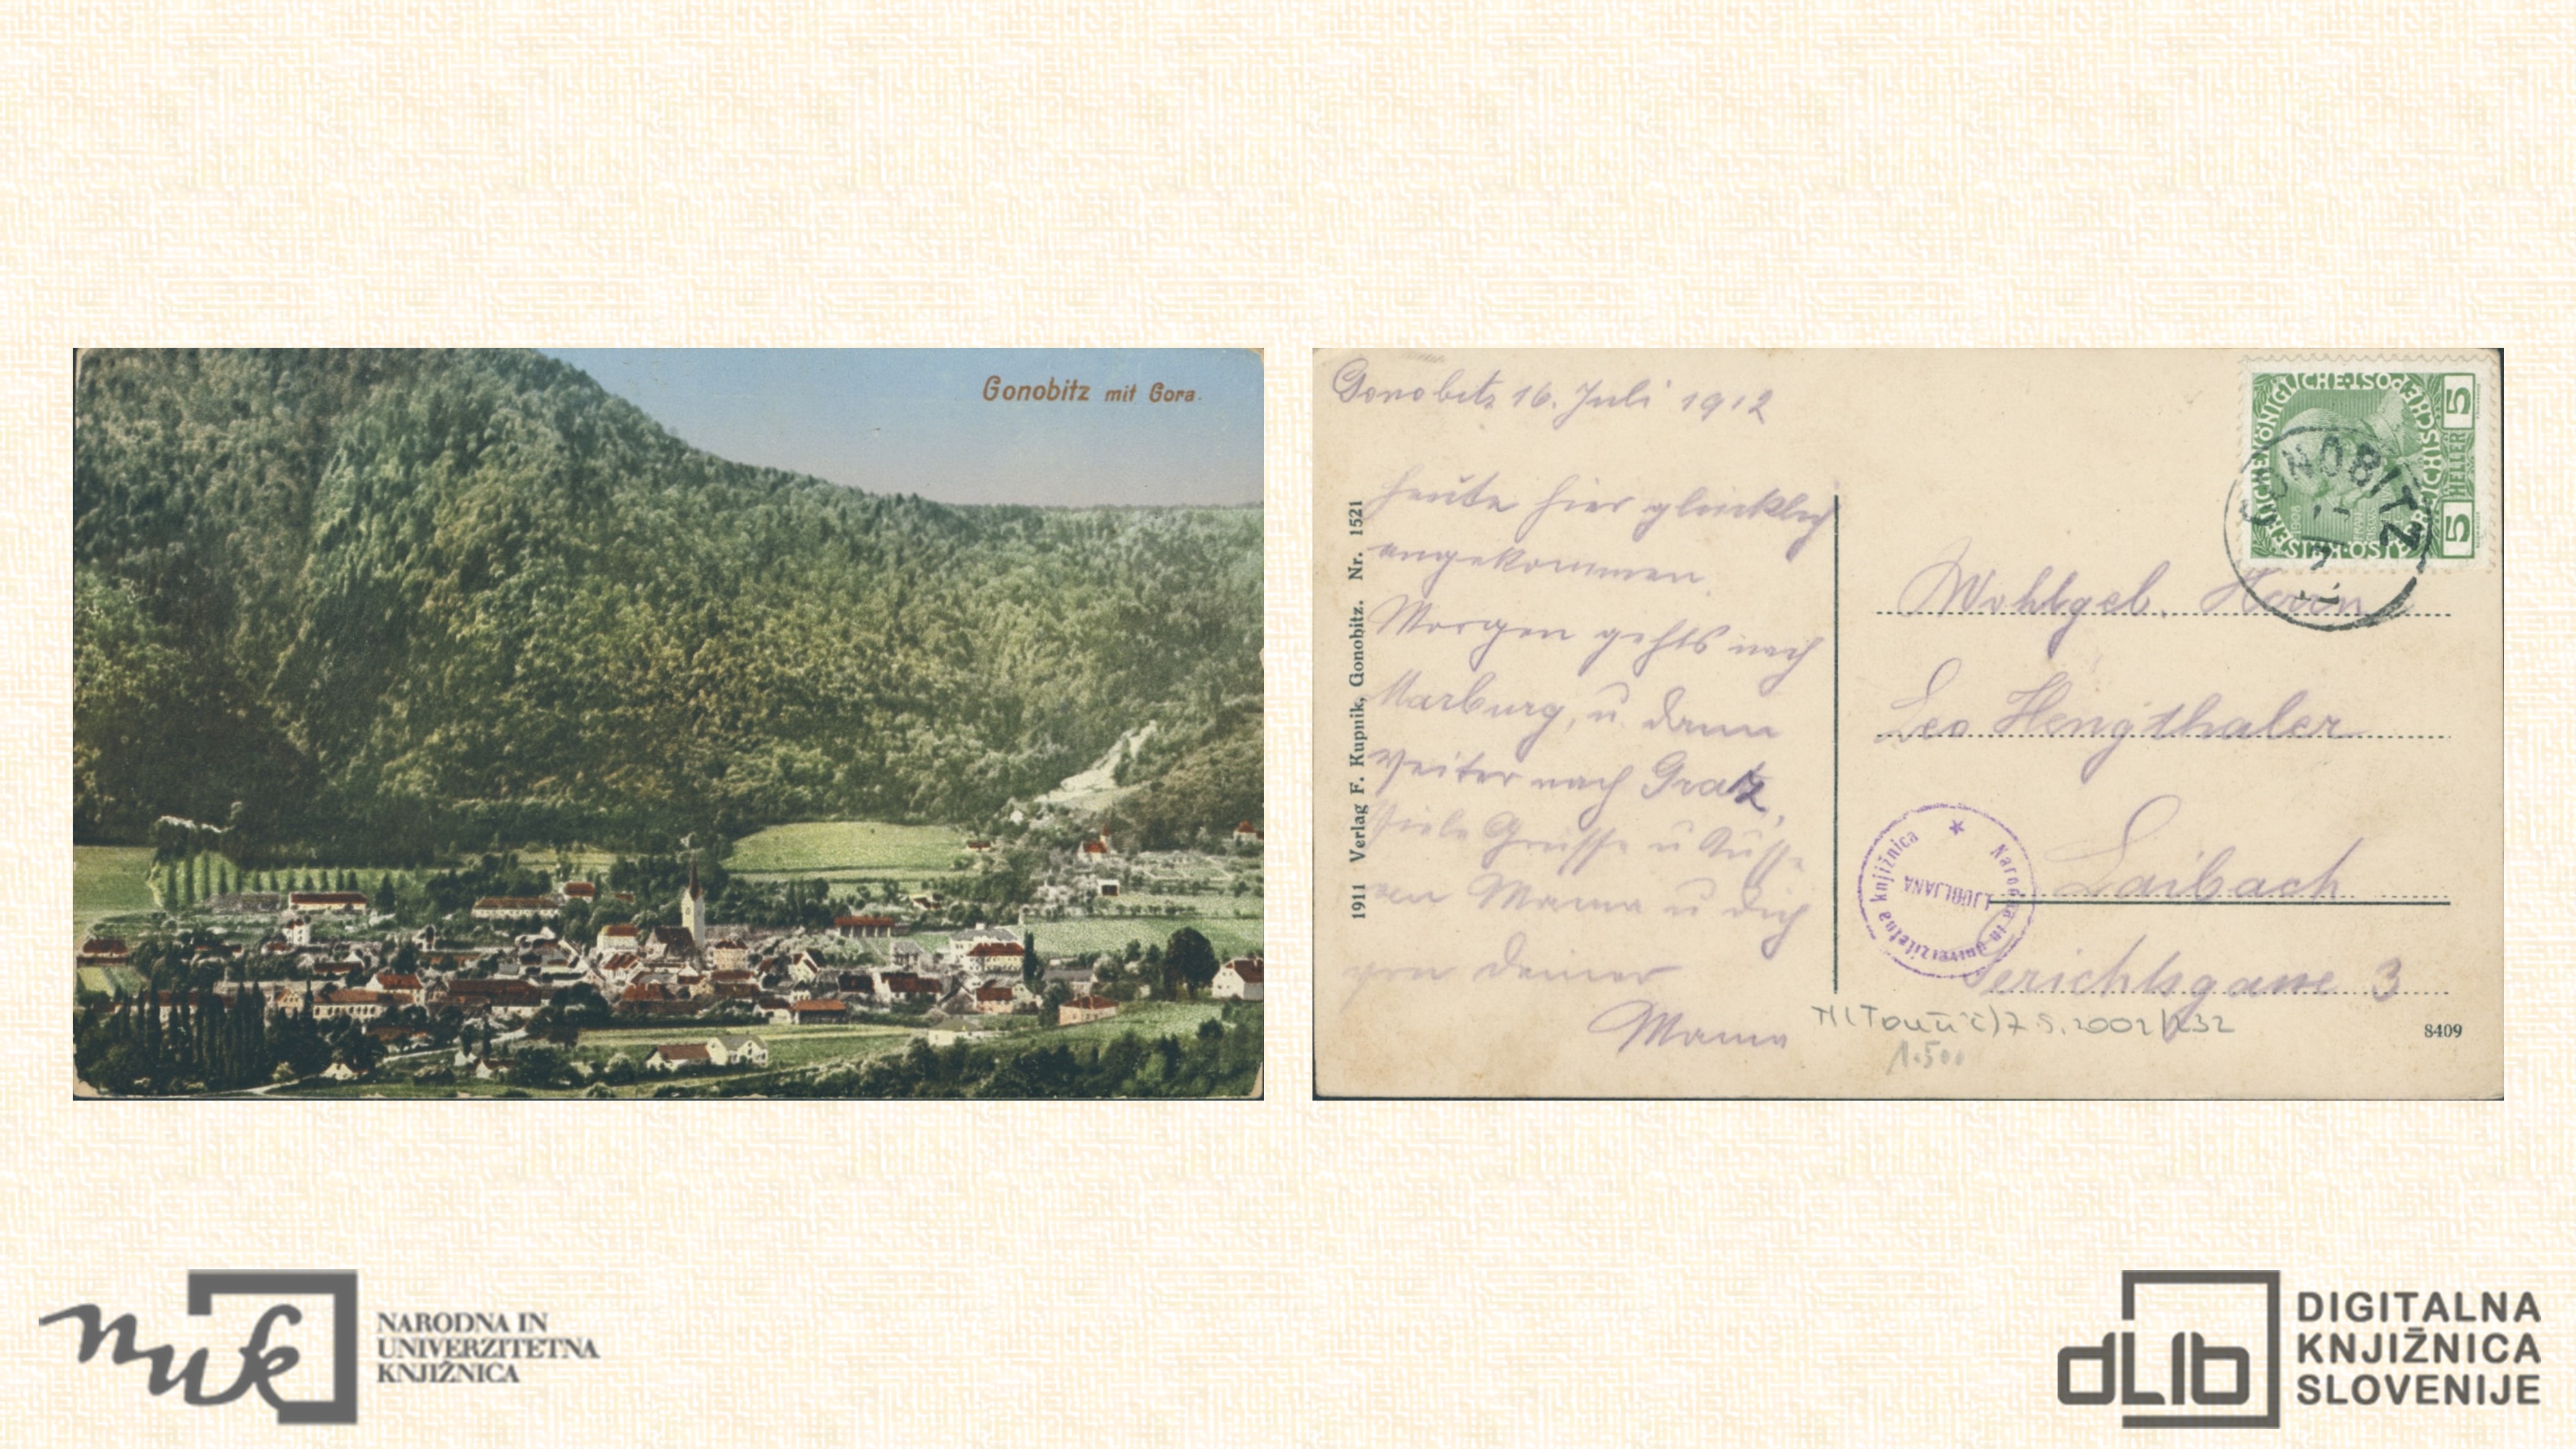 Gonobitz mit Gora.
Gonobitz 16. Juli 1912
Heute hier glücklich
angekommen.
Morgen gehts nach
Marburg, u. dann
weiter nach Gratz,
Viele Grüsse u Küsse
an Mama u dich
von deiner
Mama
1911 Verlag F. Kupnik, Gonobitz. Nr. 1521
KAISERLICHE KÖNIGLICHE POST
5 HELLER 5
GONOBITZ
Wohlgeb. Herrn
Leo Hengthaler
Laibach
Gerichtsgasse 3
Narodna in univerzitetna knjižnica
LJUBLJANA
7.5.2002/232
1.500
8409
NARODNA IN
UNIVERZITETNA
KNJIŽNICA
nuk
dLIb
DIGITALNA
KNJIŽNICA
SLOVENIJE